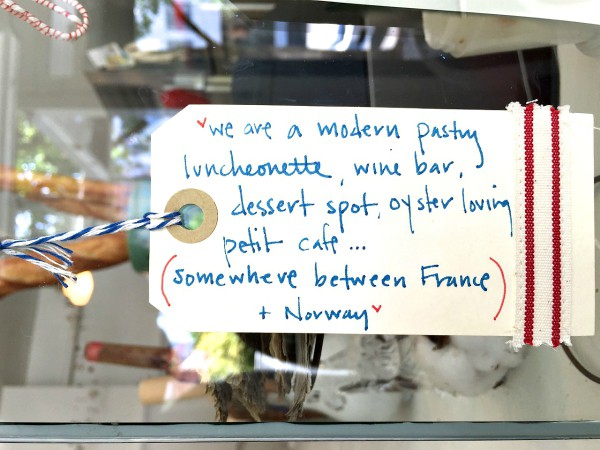 "we are a modern pastry
luncheonette, wine bar,
dessert spot, oyster loving
petit cafe...
(somewhere between France
+ Norway")